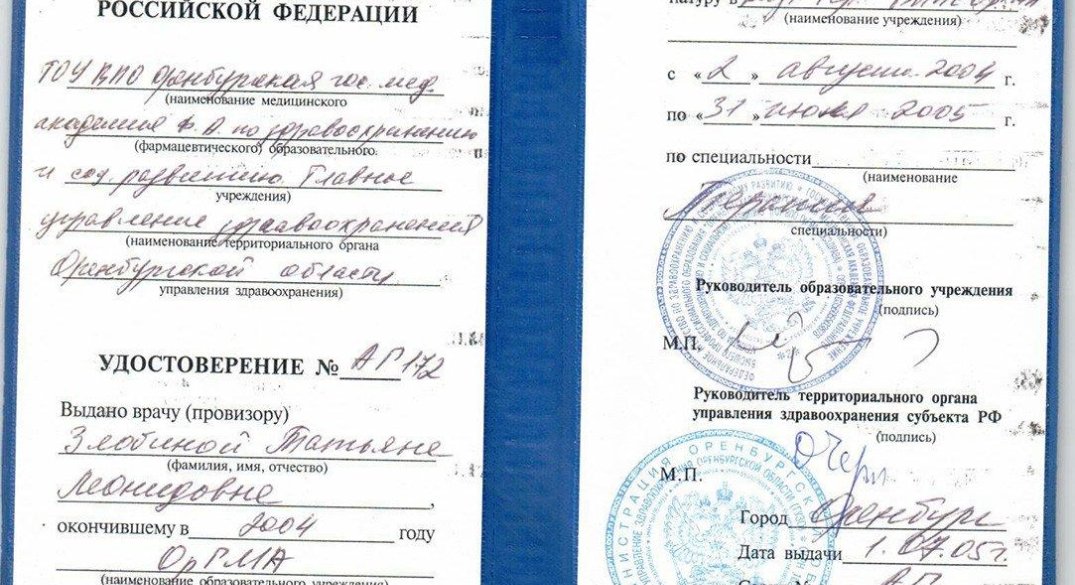 РОССИЙСКОЙ ФЕДЕРАЦИИ
ГОУ ВПО Оренбургская гос. мед.
(наименование медицинского
академия Ф.А. по здравоохранению
(фармацевтического) образовательного
и соц. развитию. Главное
учреждения)
управление здравоохранения
(наименование территориального органа
Оренбургской области
управления здравоохранения)
УДОСТОВЕРЕНИЕ № АГ 172
Выдано врачу (провизору)
Злобиной Татьяне
(фамилия, имя, отчество)
Леонидовне,
окончившему в 2004 году
ОрГМА
(наименование образовательного учреждения)
натуру в
(наименование учреждения)
с «2» августа 2004 г.
по «31» июля 2005 г.
по специальности
(наименование
Терапия
специальности)
Руководитель образовательного учреждения
(подпись)
М.П.
Руководитель территориального органа
управления здравоохранения субъекта РФ
(подпись)
М.П.
Город Оренбург
Дата выдачи 1.07.05г.
АГ